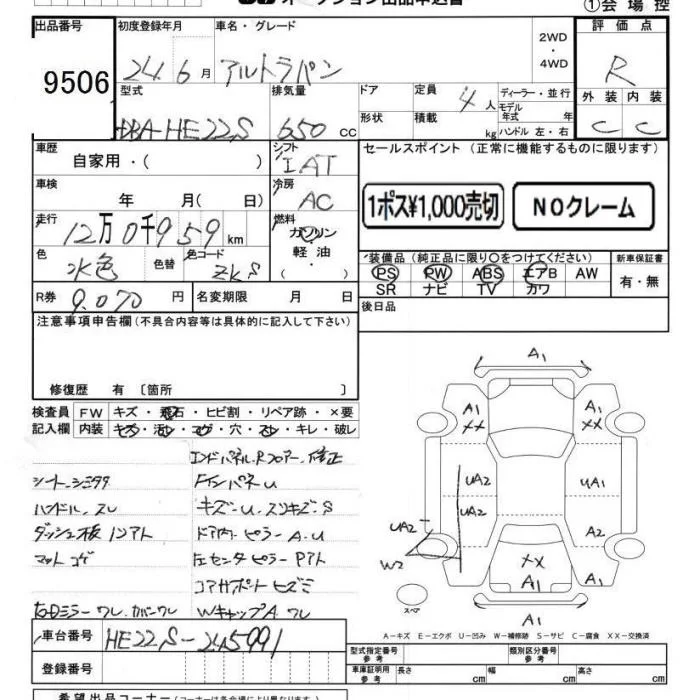 オークション出品申込書
①会場控
出品番号 9506
初度登録年月 24 6 月
車名・グレード アルトラパン
2WD・4WD
評価点 R
外装 内装
C C
型式 DBA-HE22S
排気量 650 cc
ドア 形状
定員 4 人
積載 kg
ディーラー・並行
モデル年式 年
ハンドル 左・右
車歴 自家用・( )
シフト IAT
セールスポイント (正常に機能するものに限ります)
1ポス¥1,000売切 NOクレーム
車検 年 月( 日)
冷房 AC
走行 12万0千959 km
燃料 ガソリン 軽油・( )
色 水色 色替 色コード ZKS
装備品(純正品に限り○をつけてください)
PS PW ABS エアB AW
SR ナビ TV カワ
新車保証書 有・無
R券 9,070 円
名変期限 月 日
後日品
注意事項申告欄(不具合内容等は具体的に記入して下さい)
修復歴 有〔箇所 〕
検査員記入欄
FW キズ・飛石・ヒビ割・リペア跡・×要
内装 キズ・汚レ・コゲ・穴・スレ・キレ・破レ
エンドパネル、Rフロアー、修正
シート、シミタタ
FインパネU
ハンドル、スレ
キズ-U、スリキズ-S
ダッシュ板 ノリアト
ドア内ピラーA、U
マット コゲ
左センタピラーPアト
コアサポートヒズミ
右Dミラーワレ、カバーワレ
WキャップA ワレ
A1
A1 XX
A1 XX
UA2 UA1
UA2 UA2 A2
W2
XX
A1 A1
A1
スペア
A-キズ E-エクボ U-凹み W-補修跡 S-サビ C-腐食 XX-交換済
車台番号 HE22S-245991
登録番号
型式指定番号 参考
類別区分番号 参考
車庫証明用 参考 長さ cm 幅 cm 高さ cm
希望出品コーナー(コーナーは各会場により異なります)